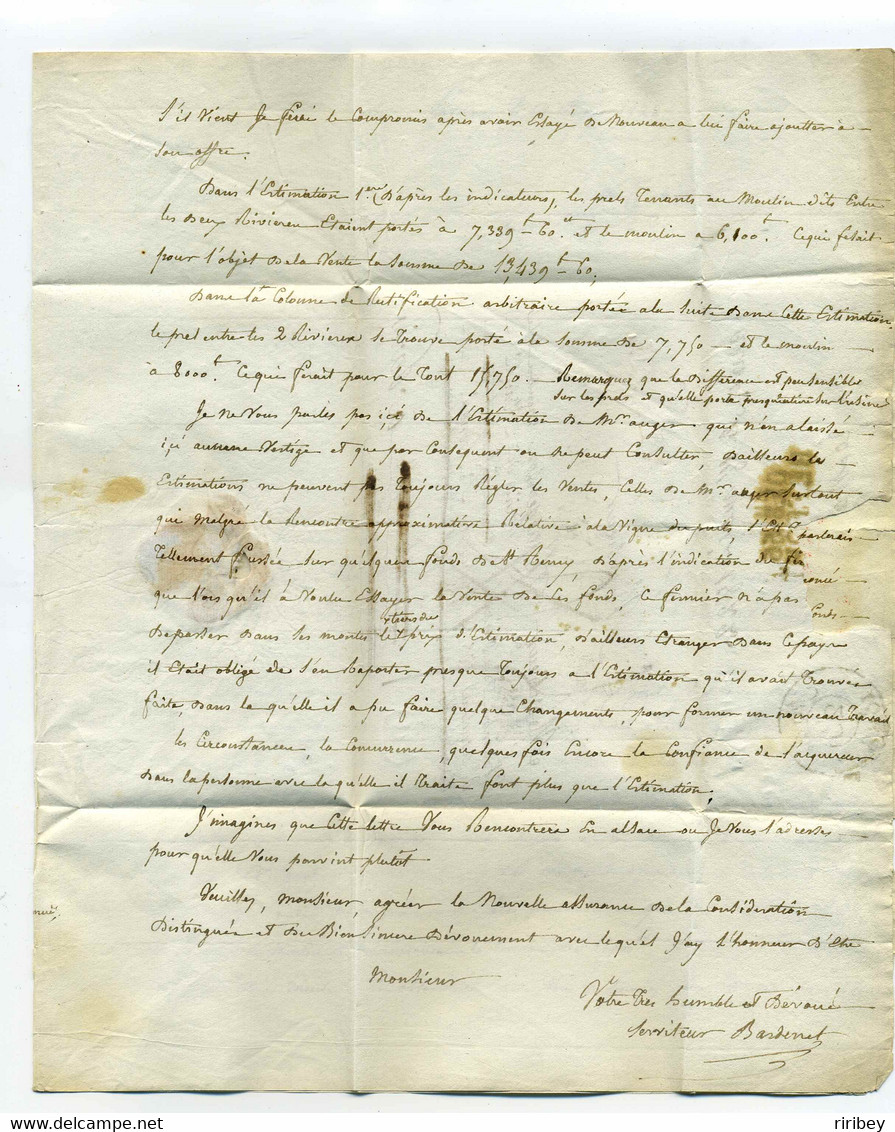 S'il vient Je ferai le Compromis après avoir Essayé de Nouveau a lui faire ajoutter à
son offre.
Dans l'Estimation 1ere (D'après les indicateurs, les prels Tenants au Moulin dits Entre
les deux Rivieres Etaient portés à 7,339 - 60. et le moulin a 6,100. Cequi fesait
pour l'objet de la Vente la Somme de 13,439 - 60,
Dans la Colonne de Rectification arbitraire portée ala Suite dans Cette Estimation,
le pred entre les 2 Rivieres se Trouve porté à la somme de 7,750 - et le moulin
à 8000. Cequi ferait pour le Tout 15,750. Remarquez que la difference est peu sensible
sur les preds et qu'elle porte presqu'entière sur l'usine
Je ne Vous parles pas içi de l'Estimation de Mr. auger qui n'en a laissé
içi aucune Vestige et que par Consequent on ne peut Consulter, d'ailleurs les
Estimations ne peuvent pas Toujours Régler les Ventes, Celles de Mr. auger Surtout
qui malgré la Rencontre approximative Rélative à la Vigne du puits, l'Est
Tellement sur quelques fonds de St Remy, d'après l'indication du
que lors qu'il à Voulu Essayer la Vente de Ces fonds, Ce fermier n'a pas
de porter dans ses montes le tiers du prix d'Estimation, d'ailleurs Etranger dans Cepays
il Etait obligé de s'en Raporter presque Toujours a l'Estimation qu'il avait Trouvée
faite, dans la qu'elle il a pu faire quelque Changements, pour former un nouveau Travail
les Circonstances, la Concurrence, quelques fois Encore la Confiance de l'aquereur
dans la personne avec la qu'elle il Traite font plus que l'Estimation.
J'imagines que Cette lettre Vous Rencontrera En alsace ou Je Vous l'adresses
pour qu'elle Vous parvint plutot
Veuillez, monsieur agréer la Nouvelle assurance de la Considération
Distinguée et du Bien Sincere Dévouement avec le qu'el J'ay l'honneur d'être
Monsieur
Votre Tres humble et Dévoué
Serviteur Bardenet
riribey